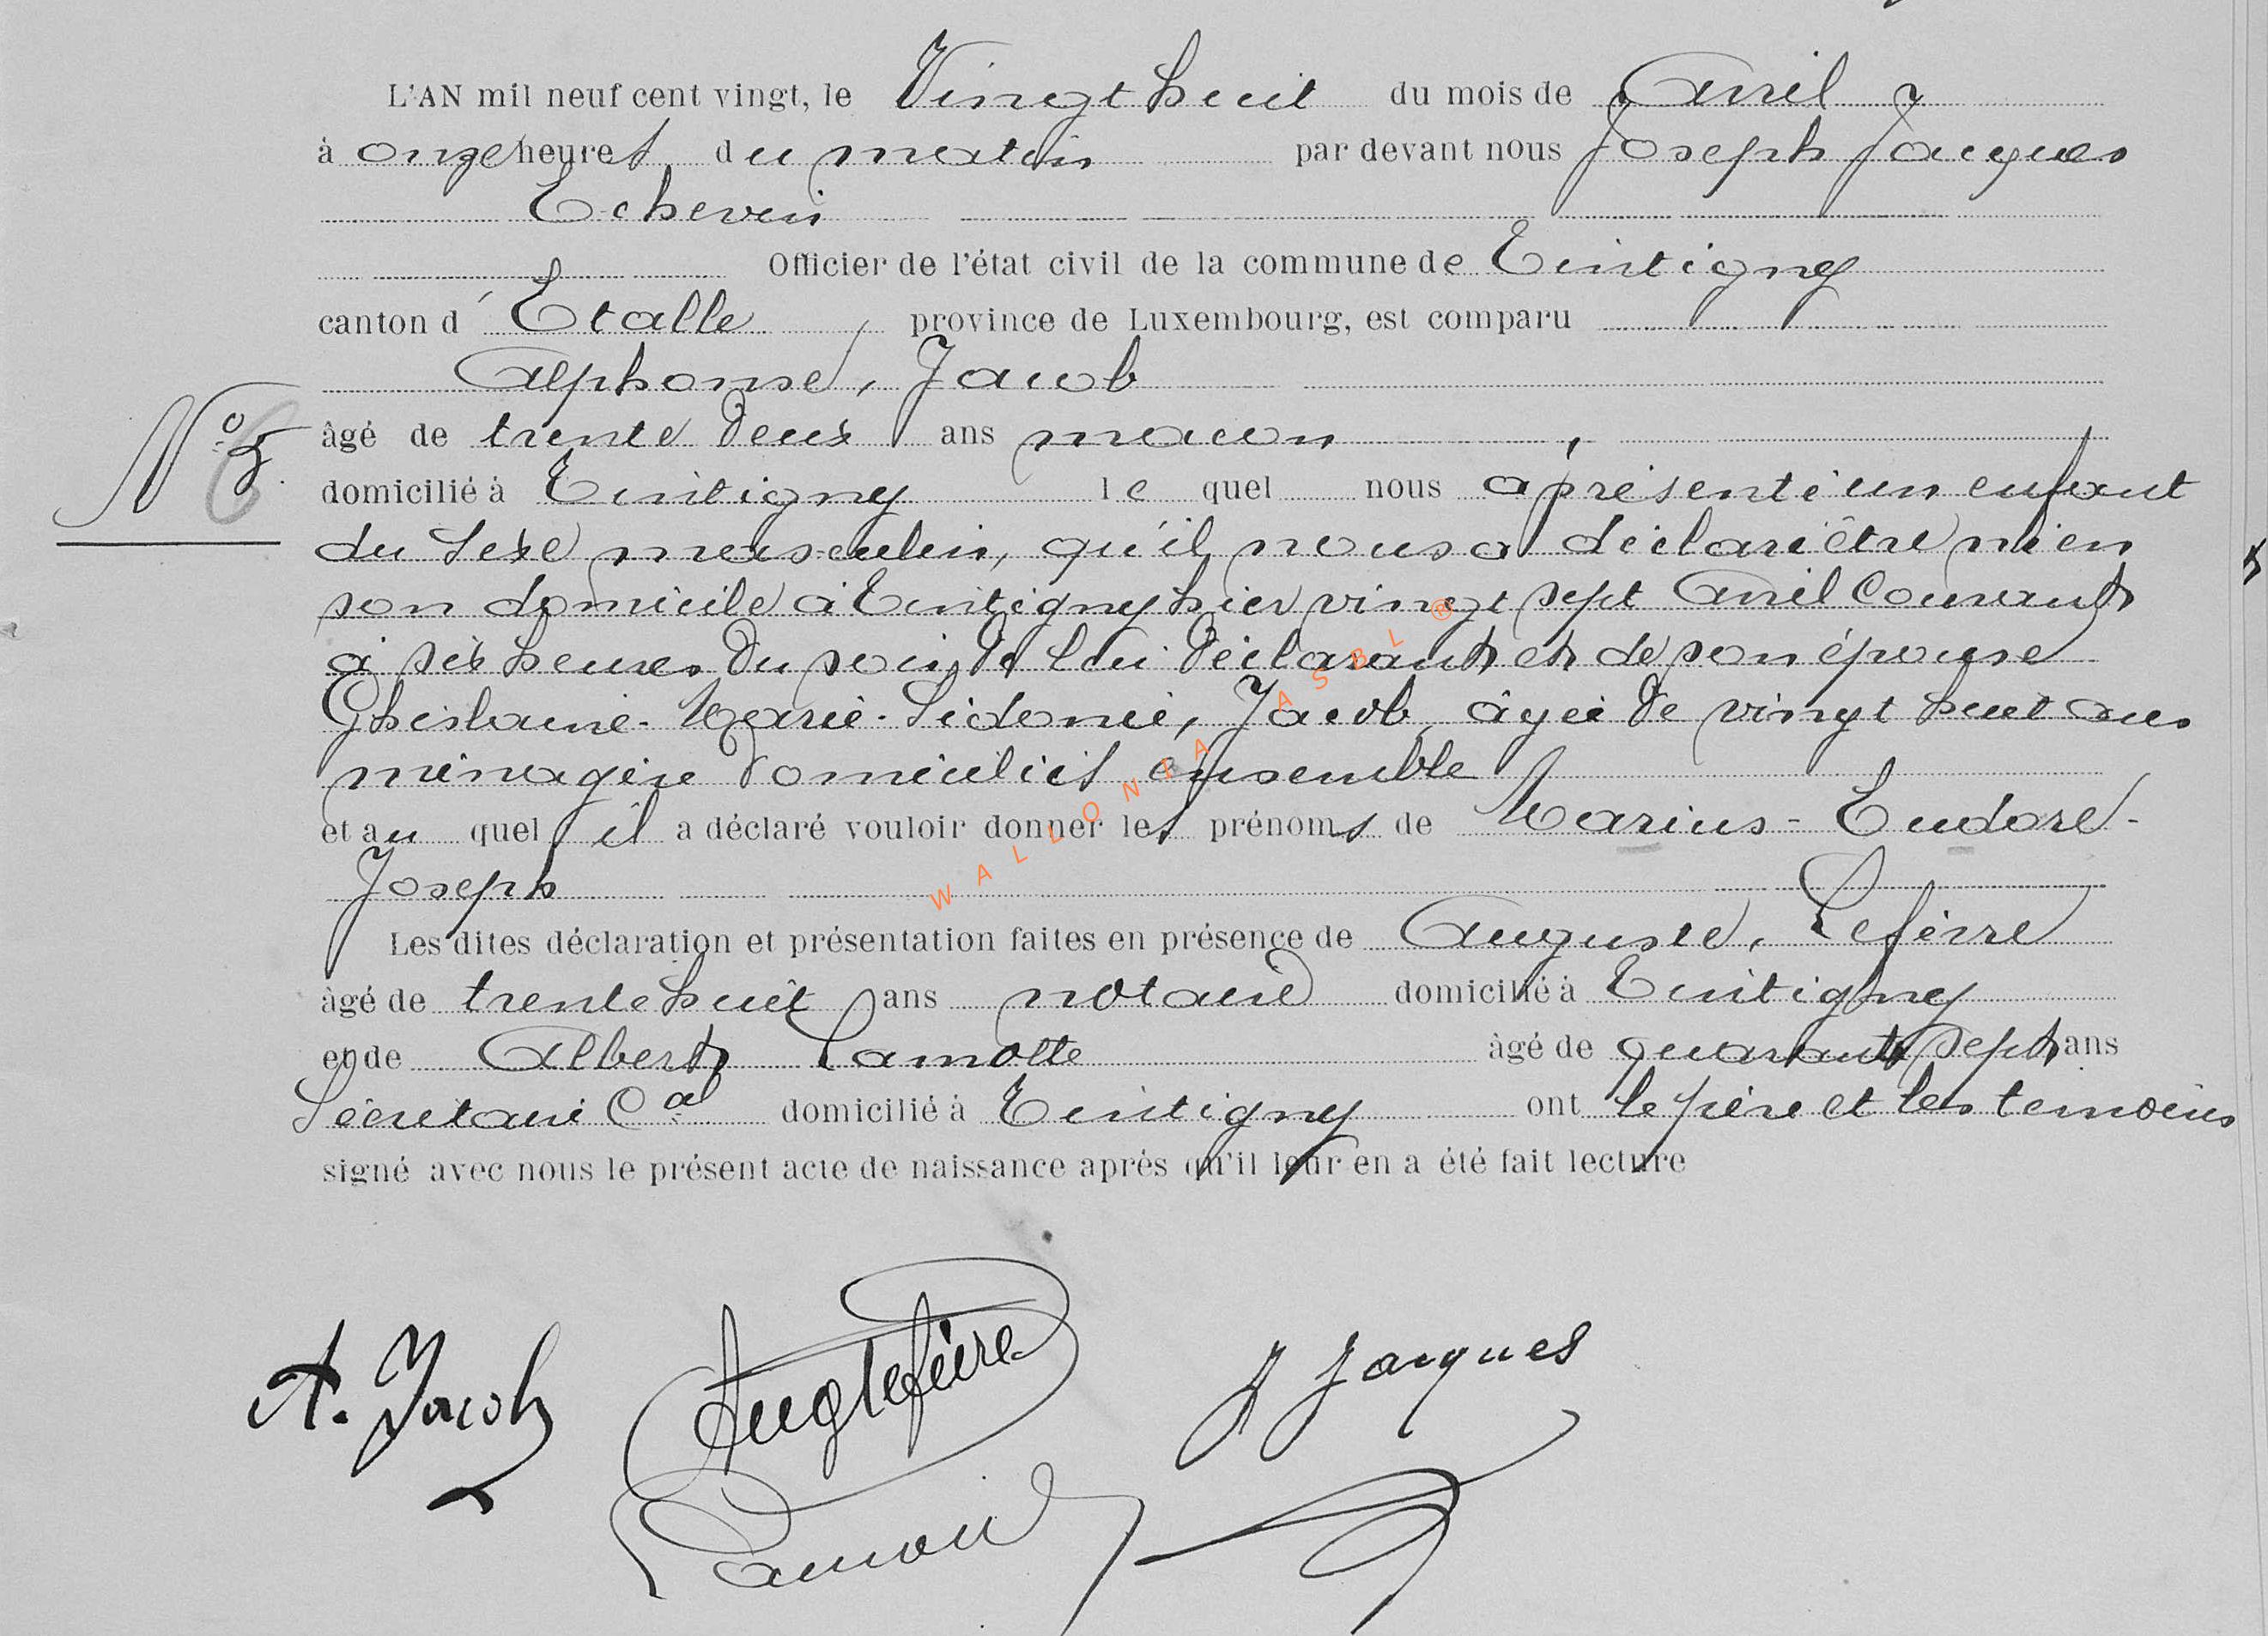 L'AN mil neuf cent vingt, le Vingt huit du mois de Avril
à onze heures du matin par devant nous Joseph Jacques
Echevin
Officier de l'état civil de la commune de Tintigny
canton d'Etalle province de Luxembourg, est comparu
Alphonse, Jacob
N° 5.
âgé de trente deux ans macon
domicilié à Tintigny le quel nous a présenté un enfant
du sexe masculin, qu'il nous a déclaré être né en
son domicile à Tintigny hier vingt sept Avril Courant
à six heures du soir, de lui déclarant et de son épouse
Ghislaine-Marie-Sidonie, Jacob, âgée de vingt huit ans
ménagère domiciliés ensemble
et au quel il a déclaré vouloir donner les prénoms de Marius-Eudore-
Joseph
Les dites déclaration et présentation faites en présence de Auguste, Lefèvre
âgé de trente huit ans notaire domicilié à Tintigny
et de Albert Lamotte âgé de quarante sept ans
Sécretaire Cal domicilié à Tintigny ont le père et les temoins
signé avec nous le présent acte de naissance après qu'il leur en a été fait lecture
WALLONIA ASBL ®
A. Jacob Aug Lefèvre J Jacques